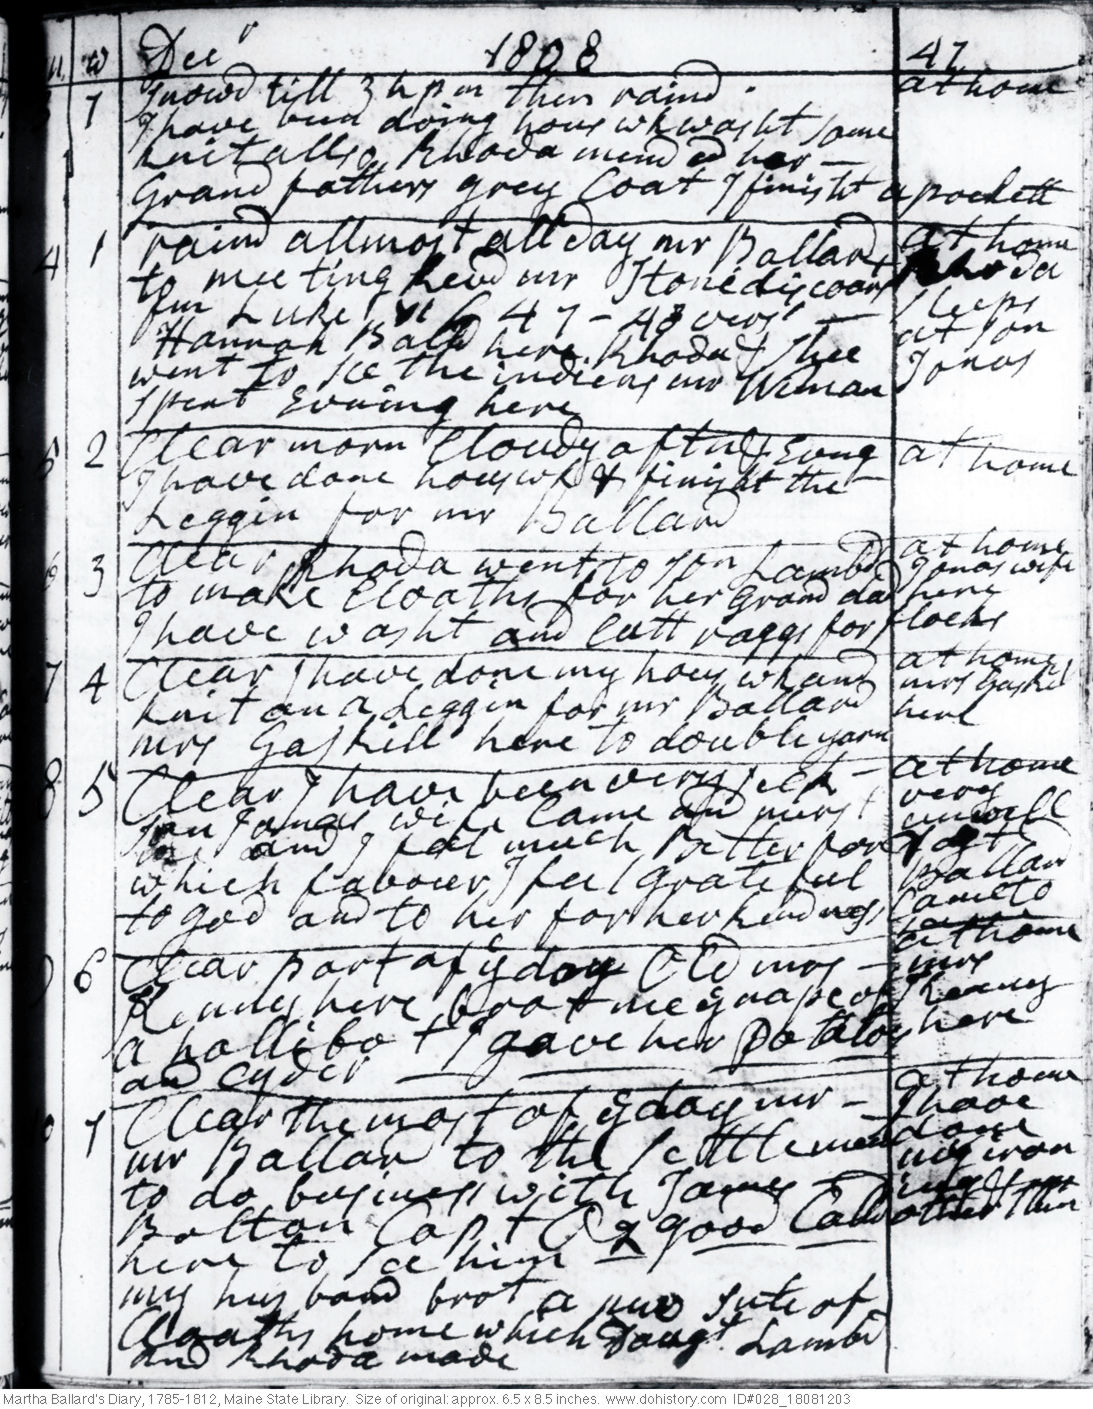 m w Decr 1808 47
3 7 Snowd till 3 h p m then raind. at home
I have been doing hous wk washt some
knit allso Rhoda mend ed her –
Grand fathers grey Coat I finisht a pockett
4 1 raind allmost all day mr Ballard at home
to meeting heard mr Stone discoars Rhoda
fm Luke 6 47 – 48 vers – sleeps
Hannah Balld here. Rhoda & Shee at son
went to see the indiens mr Wiman Jonas
spent Evning here
5 2 Clear morn Cloudy aftn & Evng at home
I have done houswk & finisht the –
Leggin for mr Ballard
6 3 Clear Rhoda went to son Lambd at home
to make Cloaths for her Grand dad Jonas wife
here
I have washt and Cutt raggs for flocks
7 4 Clear I have done my hous wk and at home
knit on a Leggin for mr Ballard mrs Gaskil
mrs Gaskill here to double yarn here
8 5 Clear I have been very sick – at home
son Jonas wife Came and nurst very
me and I felt much Better for unwell
which favour I feel gratefull Ballard
to god and to her for her kindness Came to
9 6 Clear part of ye day Old mrs – at home
Kenny here brot me ye nape of mrs Kenney
a hollibot I gave her Potatoes here
and Cyder
7 Clear the most of ye day mr – at home
mr Ballard to the Settlement I have done
to do business with James my iron
Bolton Capt good ing & other things
here to see him
my husband brot a new sute of
Cloaths home which Daugt Lambd
and Rhoda made
Martha Ballard's Diary, 1785-1812, Maine State Library. Size of original: approx. 6.5 x 8.5 inches. www.dohistory.com ID#028_18081203